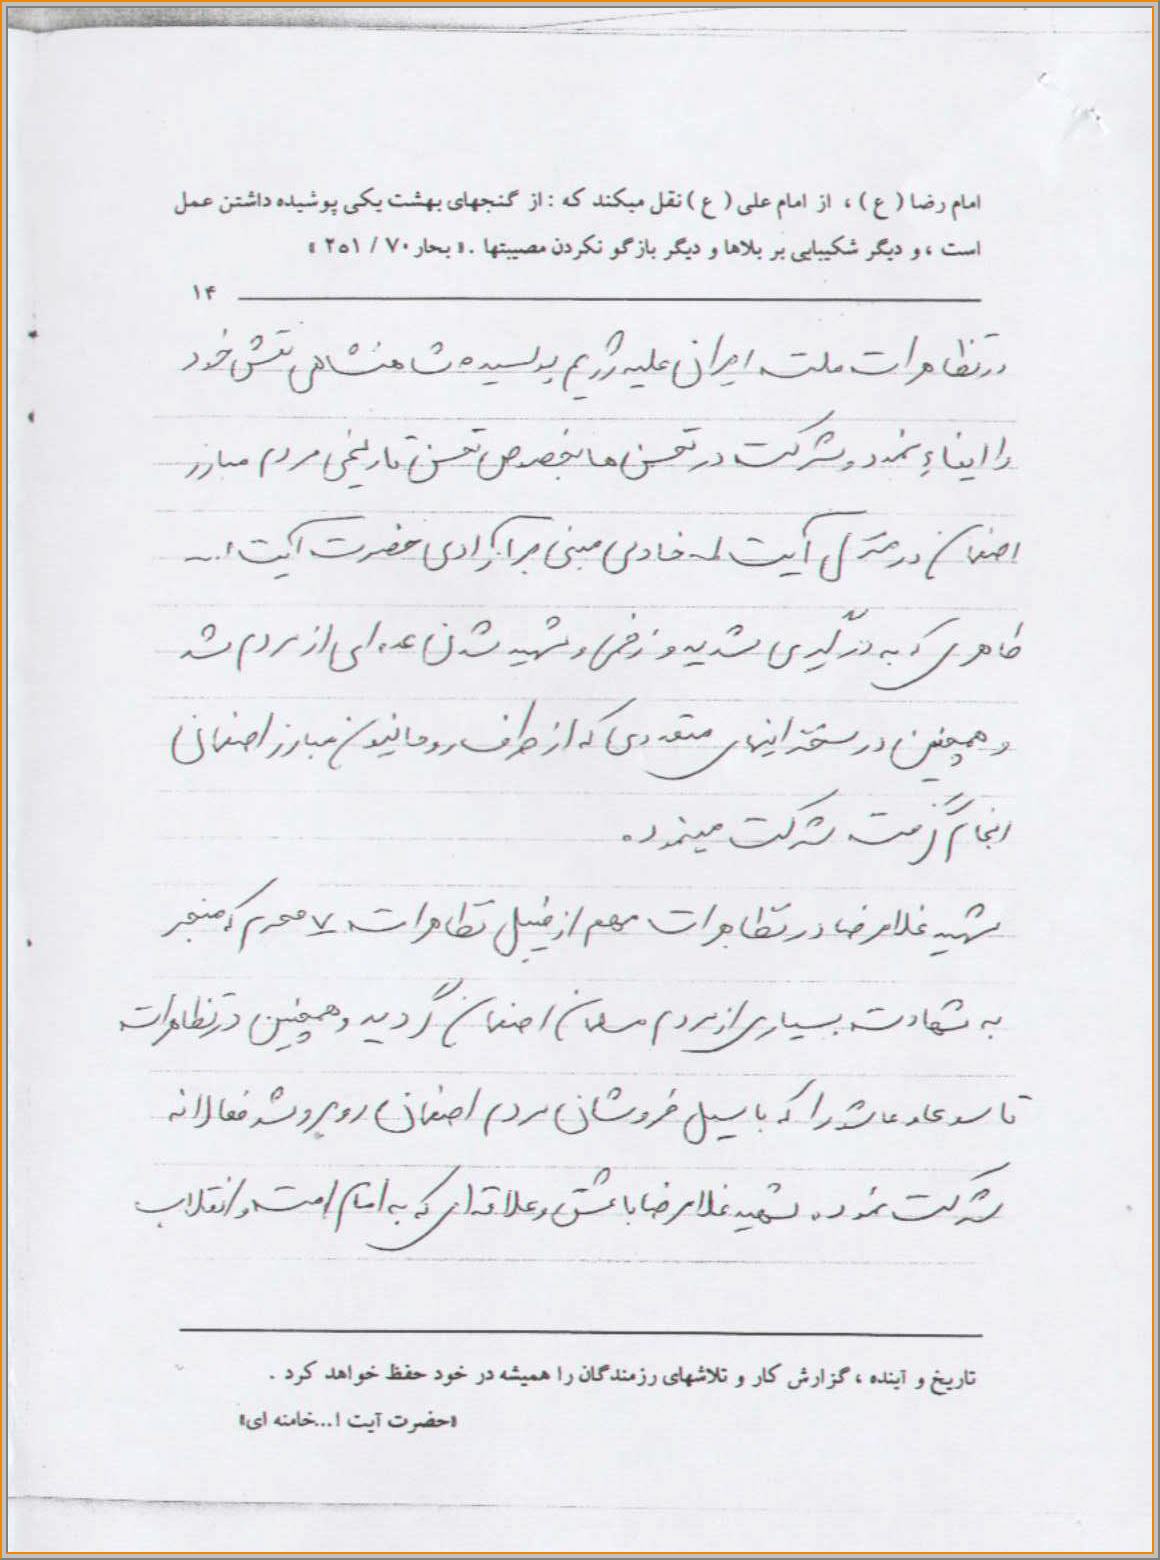 امام رضا ( ع ) ، از امام علی ( ع ) نقل میکند که : از گنجهای بهشت یکی پوشیده داشتن عمل
است ، و دیگر شکیبایی بر بلاها و دیگر بازگو نکردن مصیبتها . « بحار ۷۰ / ۲۵۱ »
۱۴
در تظاهرات ملت ایران علیه رژیم پوسیده شاهنشاهی نقش خود
را ایفاء نمود و شرکت در تحصن ها بخصوص تحصن تاریخی مردم مبارز
اصفهان در منزل آیت اله خادمی مبنی بر آزادی حضرت آیت ا...
طاهری که به درگیری شدید و زخمی و شهید شدن عده ای از مردم شد
و همچنین در سخنرانیهای متعددی که از طرف روحانیون مبارز اصفهان
انجام گرفت شرکت مینمود.
شهید غلامرضا در تظاهرات مهم از قبیل تظاهرات ۷ محرم که منجر
به شهادت بسیاری از مردم مسلمان اصفهان گردید و همچنین در تظاهرات
تاسوعا و عاشورا که با سیل خروشان مردم اصفهان روبرو شد فعالانه
شرکت نمود. شهید غلامرضا با عشق و علاقه ای که به امام امت و انقلاب
تاریخ و آینده ، گزارش کار و تلاشهای رزمندگان را همیشه در خود حفظ خواهد کرد .
«حضرت آیت ا...خامنه ای»